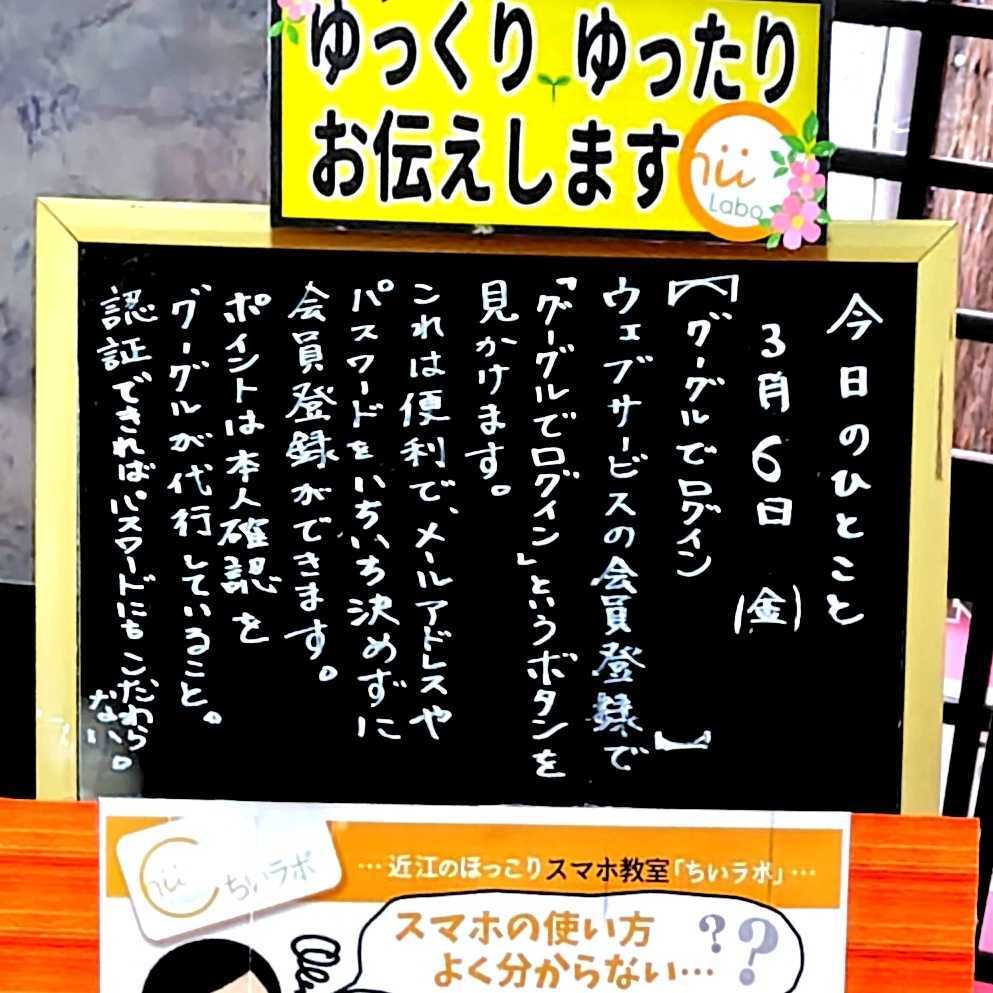 ゆっくり ゆったり
お伝えします
Labo
今日のひとこと
3月6日(金)
【グーグルでログイン】
ウェブサービスの会員登録で
「グーグルでログイン」というボタンを
見かけます。
これは便利で、メールアドレスや
パスワードをいちいち決めずに
会員登録ができます。
ポイントは本人確認を
グーグルが代行していること。
認証できればパスワードにもこだわら
ない。
ちいラボ
…近江のほっこりスマホ教室「ちいラボ」…
スマホの使い方
よく分からない…
??